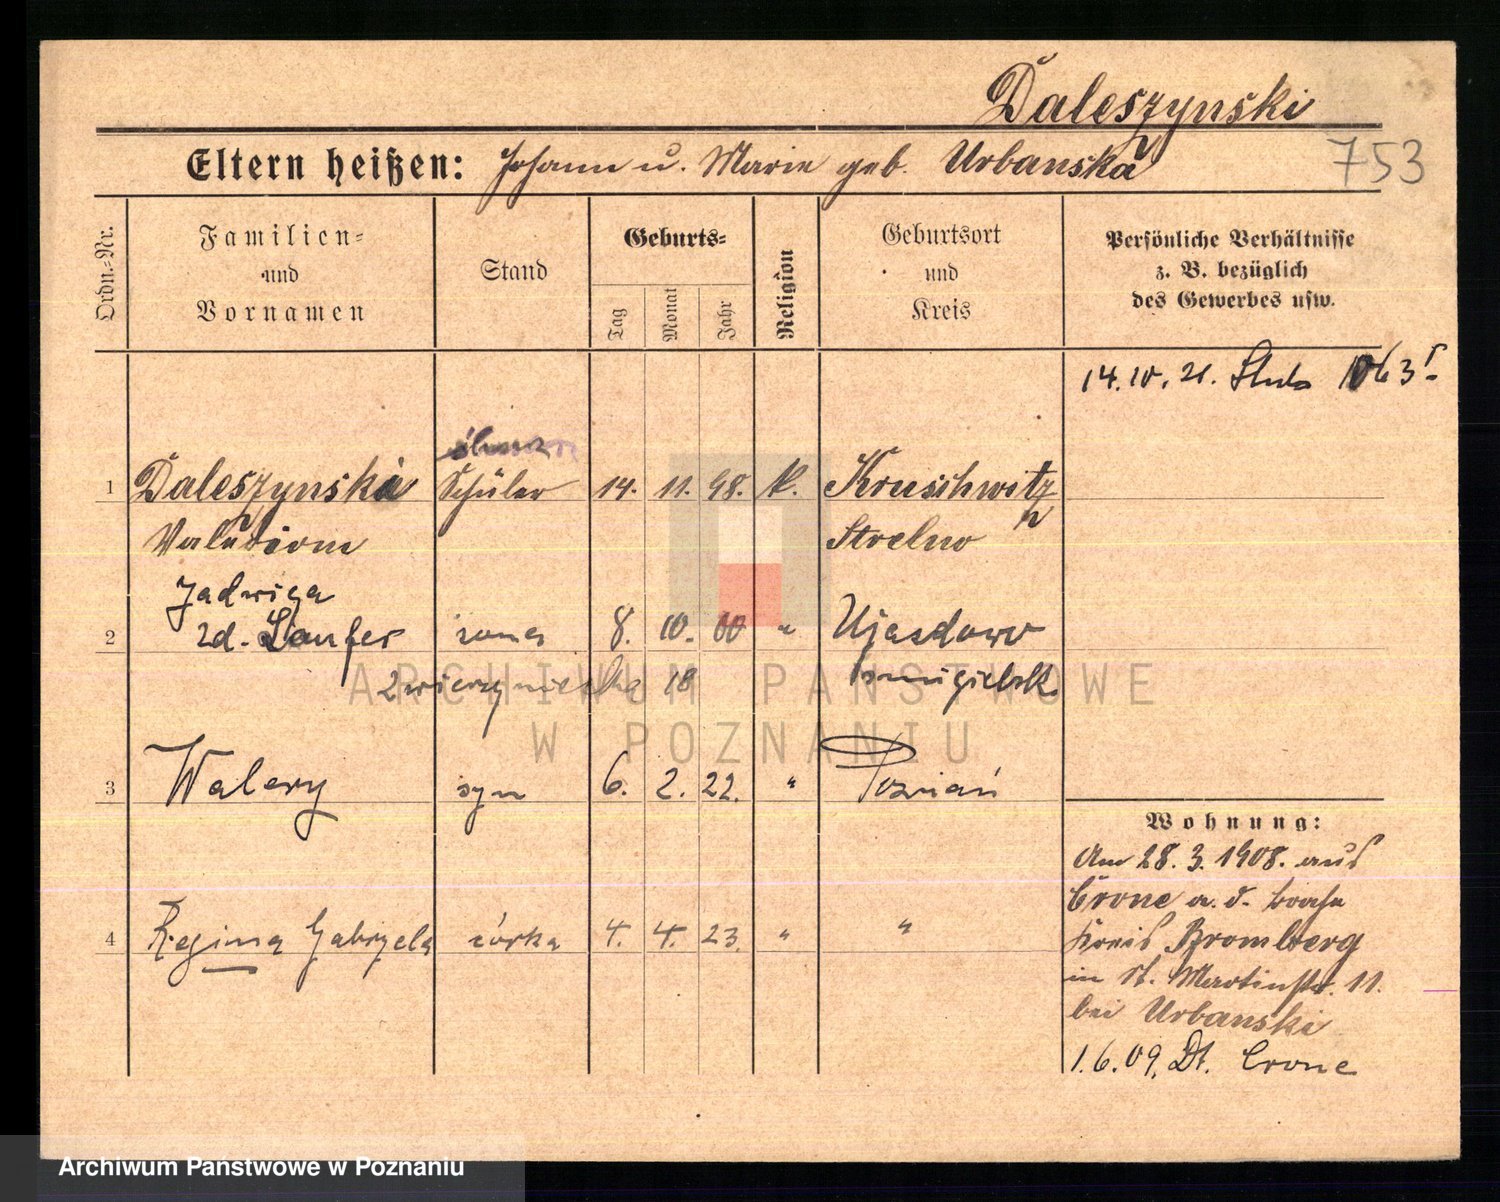 Daleszynski
Eltern heißen: Johann u. Marie geb. Urbanska
753
Ordn.-Nr.
Familien-
und
Vornamen
Stand
Geburts-
Tag
Monat
Jahr
Religion
Geburtsort
und
Kreis
Persönliche Verhältnisse
z. B. bezüglich
des Gewerbes usw.
14.10.21.
ślusarz
1 Daleszynski Schüler 14. 11. 98. k. Kruschwitz
Strelno
Jadwiga
2 zd. Laufer żona 8. 10. 00 " Ujazdowo
Zwierzyniecka 18
3 Walery syn 6. 2. 22. " Poznań
Wohnung:
Am 28.3.1908. aus
4 Regina Gabryela córka 4. 4. 23. " "
Crone a. d. Brahe
Kreis Bromberg
in St. Martinstr. 11.
bei Urbanski
1.6.09. Dt. Crone
ARCHIWUM PAŃSTWOWE
W POZNANIU
Archiwum Państwowe w Poznaniu